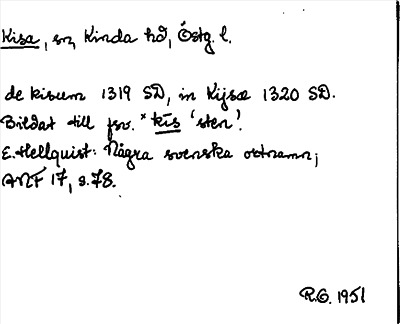 Kisa, sn, Kinda hd, Östg. l.
de kisum 1319 SD, in Kijsæ 1320 SD.
Bildat till fsv. *kīs 'sten'.
E. Hellquist: Några svenska ortnamn;
ANF 17, s. 78.
R.G. 1951